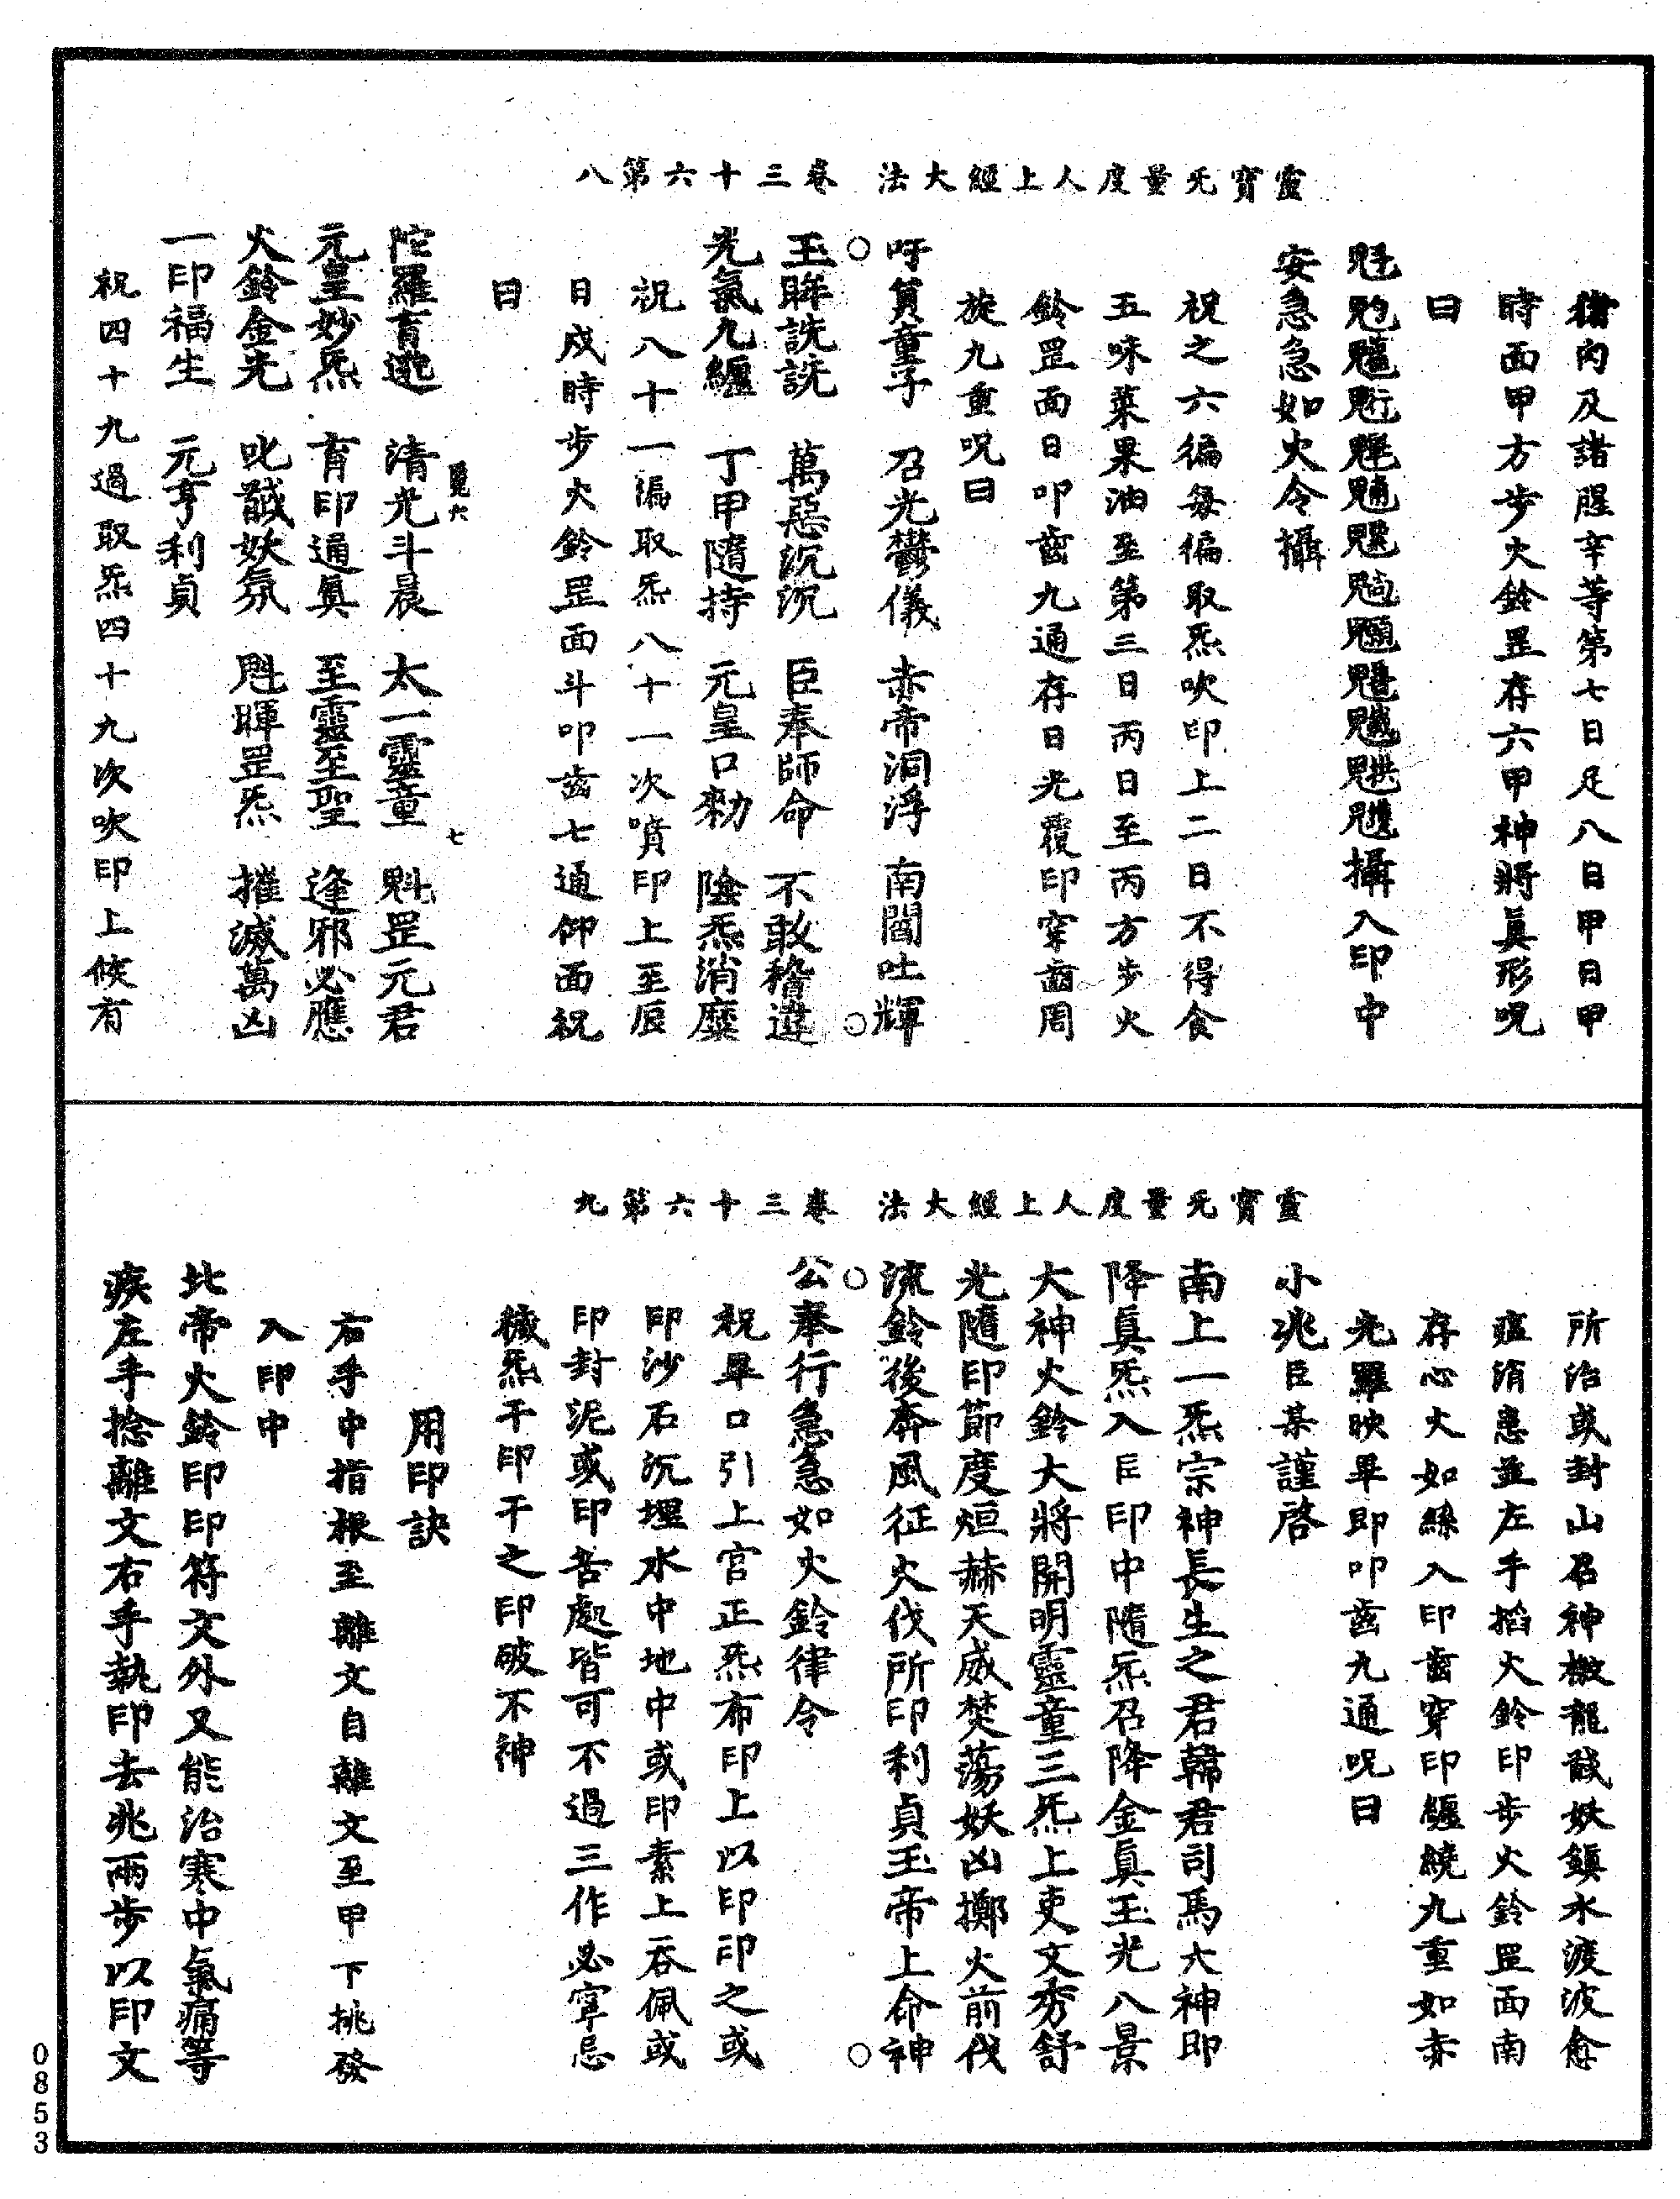 靈寶无量度人上經大法　卷三十六第八
猪肉及諸腥辛等第七日足八日甲日甲
時面甲方步火鈴罡存六甲神將真形呪
曰
攝入印中
安急急如火令攝
祝之六徧每徧取炁吹印上二日不得食
五味菜果油至第三日丙日至丙方步火
鈴罡面日叩齒九通存日光覆印穿齒周
旋九重呪曰
吁負童子　召光鬱儀　赤帝洞浮　南閶吐輝
玉眸詵詵　萬惡沉沉　臣奉師命　不敢稽違
光氣九纏　丁甲隨持　元皇口勑　陰炁消糜
祝八十一徧取炁八十一次噴印上至辰
日戌時步火鈴罡面斗叩齒七通仰面祝
曰
陀羅育逃　清光斗晨　太一靈童　魁罡元君
元皇妙炁　育印通真　至靈至聖　逢邪必應
火鈴金光　叱馘妖氛　魁暉罡炁　摧滅萬凶
一印福生　元亨利貞
祝四十九過取炁四十九次吹印上候有
靈寶无量度人上經大法　卷三十六第九
所治或封山召神檄龍馘妖鎮水渡波愈
瘟消患並左手搯火鈴印步火鈴罡面南
存心火如絲入印齒穿印纏繞九重如赤
光羅映畢即叩齒九通呪曰
小兆臣某謹啓
南上一炁宗神長生之君韓君司馬大神即
降真炁入臣印中隨炁召降金真玉光八景
大神火鈴大將開明靈童三炁上吏文秀舒
光隨印節度烜赫天威焚蕩妖凶擲火前伐
流鈴後奔風征火伐所印利貞玉帝上命神
公奉行急急如火鈴律令
祝畢口引上宮正炁布印上以印印之或
印沙石沉埋水中地中或印素上吞佩或
印封泥或印苦處皆可不過三作必寧忌
穢炁干印干之印破不神
用印訣
右手中指根至離文自離文至甲下挑發
入印中
北帝火鈴印印符文外又能治寒中氣痛等
疾左手捻離文右手執印去兆兩步以印文
0853